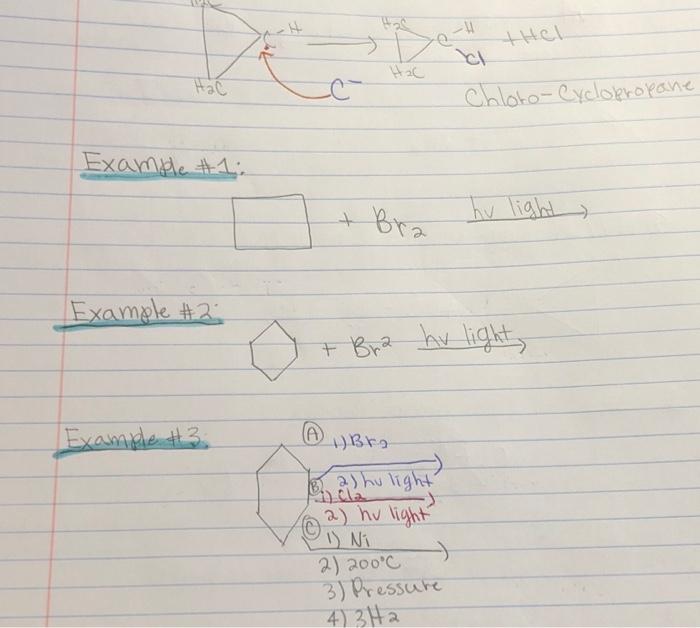 H2C
C-H → H2C C-H + HCl
Cl
H2C C- H2C
Chloro-Cyclopropane
Example #1:
+ Br2 hv light →
Example #2:
+ Br2 hv light →
Example #3:
A 1) Br2
B 2) hv light
1) Cl2
2) hv light
C 1) Ni
2) 200°C
3) Pressure
4) 3H2